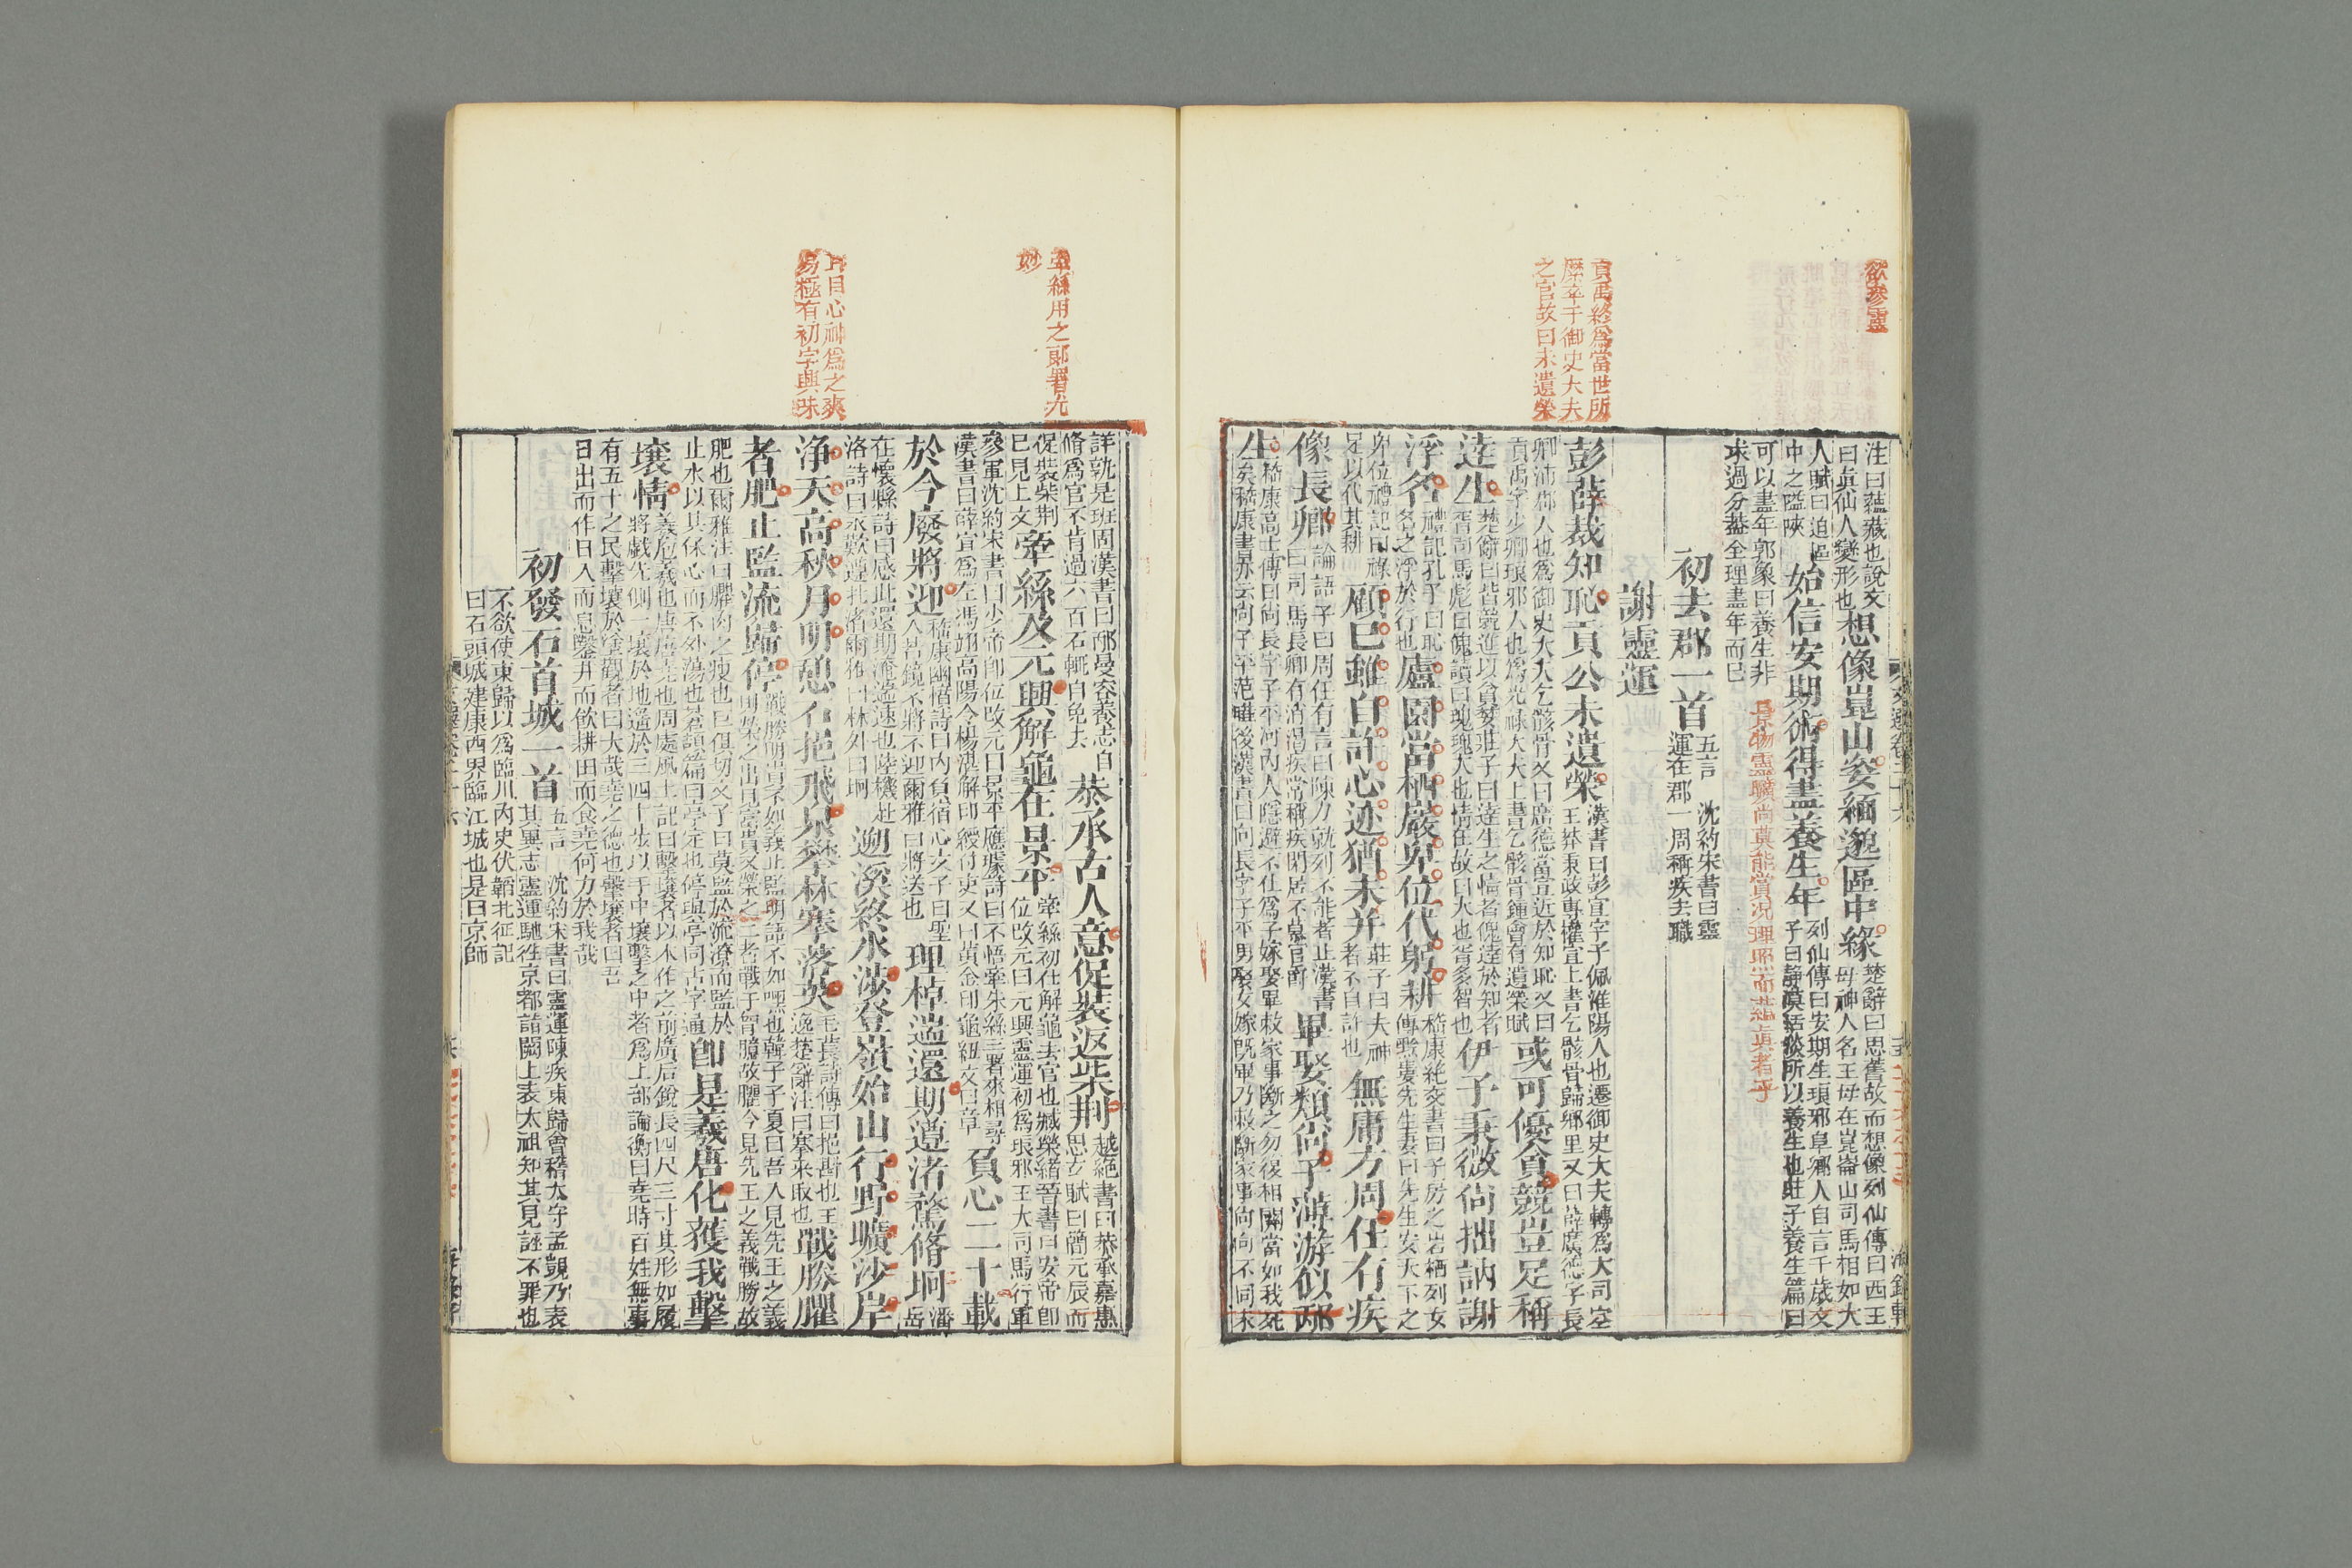 欲參靈
注曰蘊藏也說文
曰眞仙人變形也
想像崑山姿緬邈區中緣
楚辭曰思舊故而想像列仙傳曰西王
母神人名王母在崑崙山司馬相如大
人賦曰迫區
中之隘陝
始信安期術得盡養生年
列仙傳曰安期生琅邪阜鄉人自言千歲文
子曰靜漠恬惔所以養生也莊子養生篇曰
可以盡年郭象曰養生非
求過分葢全理盡年而巳
景物靈曠尚莫能賞況理照而蘊眞者乎
初去郡一首
五言 沈約宋書曰靈
運在郡一周稱疾去職
謝靈運
貢禹終為當世所
卒于御史大夫
之官故曰未遺榮
彭薛裁知恥貢公未遺榮
漢書曰彭宣字子佩淮陽人也遷御史大夫轉為大司空
王莽秉政專權宣上書乞骸骨歸鄉里又曰薛廣德字長
卿沛郡人也為御史大夫乞骸骨又曰廣德當宣近於知恥又曰
貢禹字少卿琅邪人也為光祿大夫上書乞骸骨鍾會有遺榮賦
或可優貪競豈足稱
逹生
楚辭曰皆競進以貪婪莊子曰逹生之情者傀逹於知者
胥司馬彪曰傀讀曰瑰瑰大也情在故曰大也胥多智也
伊予秉微尙拙訥謝
浮名
禮記孔子曰恥
名之浮於行也
廬園當栖巖卑位代躬耕
嵇康絶交書曰子房之岩栖列女
傳黔婁先生妻曰先生安天下之
卑位禮記曰祿
足以代其耕
顧已雖自許心迹猶未并
莊子曰夫神
者不自許也
無庸方周任有疾
像長卿
論語子曰周任有言曰陳力就列不能者止漢書
曰司馬長卿有消渴疾常稱疾閑居不慕官爵
畢娶類尙子薄游似邴
生
嵇康高士傳曰尙長字子平河內人隱避不仕為子嫁娶畢敕家事斷之勿復相關當如我死
矣嵇康書亦云尙子平范曄後漢書曰向長字子平男娶女嫁旣畢乃敕斷家事尙向不同未
詳孰是班固漢書曰邴曼容養志自
脩為官不肯過六百石輒自免去
恭承古人意促裝返柴荆
越絶書曰恭承嘉惠
思玄賦曰簡元辰而
促裝柴荆
巳見上文
牽絲及元興解龜在景平
牽絲初仕解龜去官也臧榮緒晉書曰安帝卽
位改元曰元興靈運初為琅邪王大司馬行軍
參軍沈約宋書曰少帝卽位改元曰景平應璩詩曰不悟牽朱絲三署來相尋
漢書曰薛宣為左馮翊高陽令楊湛解印綬付吏又曰黃金印龜紐文曰章
負心二十載
牽絲用之郎署尤
妙
於今廢將迎
嵇康幽憤詩曰內負宿心文子曰聖
人若鏡不將不迎爾雅曰將送也
理棹遄還期遵渚騖脩坰
潘
岳
在懷縣詩曰感此還期淹遄速也陸機赴
洛詩曰永歎遵北渚爾雅曰林外曰坰
遡溪終水涉登嶺始山行野曠沙岸
淨天高秋月明憩石挹飛泉攀林搴落英
毛萇詩傳曰挹斟也王
逸楚辭注曰搴采取也
戰勝臞
目心神為之爽
易極有初字興味
者肥止監流歸停
戰勝明貴不如義止監明諠不如嘿也韓子子夏曰吾入見先王之義
則榮之出見富貴又榮之二者戰于胷臆故臞今見先王之義戰勝故
肥也爾雅注曰臞肉之瘦也巨俱切文子曰莫監於流潦而監於
止水以其保心而不外蕩也蒼頡篇曰亭定也停與亭同古字通
卽是羲唐化獲我擊
壤情
羲伏羲也唐唐堯也周處風土記曰擊壤者以木作之前廣后銳長四尺三寸其形如履
將戱先側一壤於地遙於三四十步以手中壤擊之中者為上部論衡曰堯時百姓無事
有五十之民擊壤於塗觀者曰大哉堯之德也擊壤者曰吾
日出而作日入而息鑿井而飲耕田而食堯何力於我哉
初發石首城一首
五言 沈約宋書曰靈運陳疾東歸會稽太守孟顗乃表
其異志靈運馳往京都詣闕上表太祖知其見誣不罪也
不欲使東歸以為臨川內史伏韜北征記
曰石頭城建康西界臨江城也是曰京師